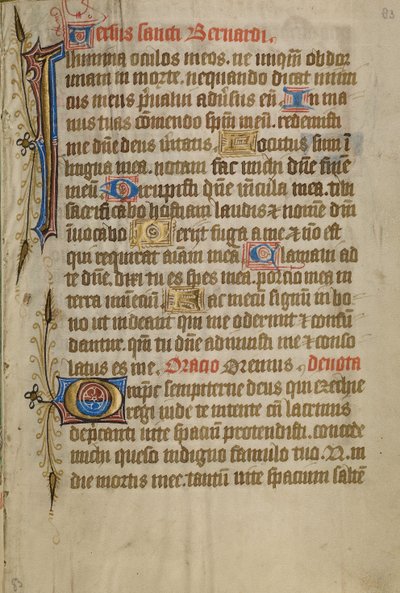 83
Versus sancti Bernardi.
Illumina oculos meos. ne unqm̄ obdor
miam in morte. nequando dicat inimi
cus meus p̄ualui adūsus eū. In ma
nus tuas cōmendo spm̄ meū. redemisti
me dn̄e deus ūitatis. Locutus sum ī
lingua mea. notam fac michi dn̄e finē
meū. Dirupisti dn̄e uīcula mea. tibi
sacrificabo hostiam laudis & nomē dn̄i
īuocabo. Periit fuga a me. & nō est
qui requirat aīam mea. Clamaui ad
te dn̄e. dixi tu es spes mea. portio mea in
terra uiuenciū. Fac mecū signū in bo
no ut uideant qui me oderunt & confun
dantur. qm̄ tu dn̄e adiuuisti me & conso
latus es me. Oracio Oremus, deuota
Omp̄e sempiterne deus qui ezechie
regi iude te intente cū lacrimis
dep̄canti uite spacium protendisti. concede
michi queso indigno famulo tuo .N. in
die mortis mee. tantū uite spacium saltē
83